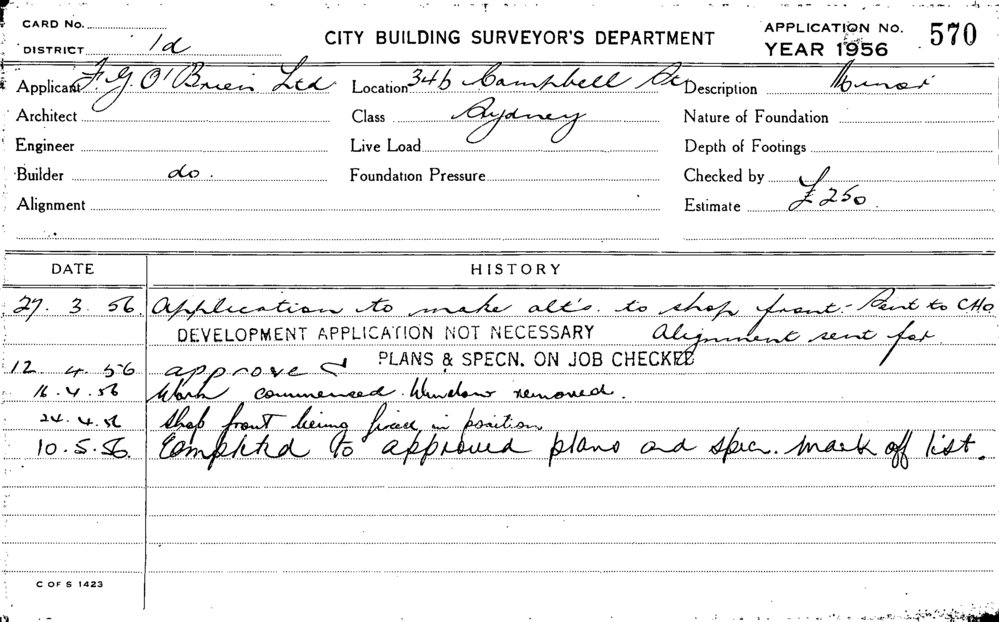 CARD No.
DISTRICT 1d
CITY BUILDING SURVEYOR'S DEPARTMENT
APPLICATION No. 570
YEAR 1956
Applicant F. G. O'Brien Ltd Location 34b Campbell St Description Minor
Architect Class Sydney Nature of Foundation
Engineer Live Load Depth of Footings
Builder do. Foundation Pressure Checked by
Alignment Estimate £250.
DATE HISTORY
27. 3. 56 Application to make alt's. to shop front - Sent to CHO
DEVELOPMENT APPLICATION NOT NECESSARY Alignment sent for
PLANS & SPECN. ON JOB CHECKED
12. 4. 56 approved
16. 4. 56 Work commenced. Window removed.
24. 4. 56 Shop front being fixed in position
10. 5. 56. Completed to approved plans and specn. Mark off list.
C OF S 1423